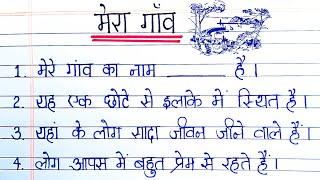 मेरा गाॅंव
1. मेरे गांव का नाम ________ है।
2. यह एक छोटे से इलाके में स्थित है।
3. यहां के लोग सादा जीवन जीने वाले हैं।
4. लोग आपस में बहुत प्रेम से रहते हैं।